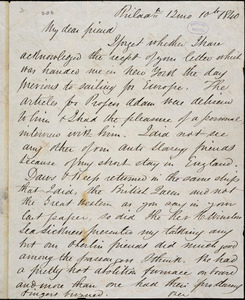 Philada 12mo 10th 1840
My dear friend,
I forget whether I have
acknowledged the receipt of your letter which
was handed me in New York the day
previous to sailing for Europe. The
articles for Professor Adam was delivered
to him & I had the pleasure of a personal
interview with him. I did not see
any other of our Anti Slavery friends
because of my short stay in England.
Daws & Keep returned in the same ship
that I did, the British Queen and not the
Great Western as you say in your
last paper, so did the Rev
Sea Sickness prevented my talking any
but our Oberlin friends did much good
among the passengers I think. We had
a pretty hot abolition furnace on board
and some had their
fingers burned.